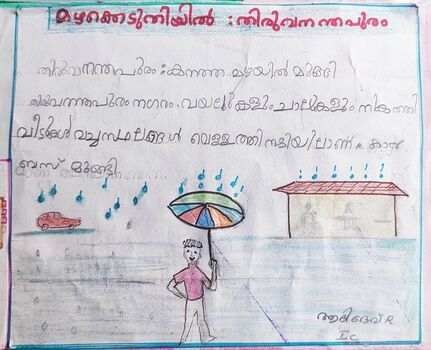 മഴക്കെടുതിയിൽ :തിരുവനന്തപുരം
തിരുവനന്തപുരം: കനത്ത മഴയിൽ മുങ്ങി
തിരുവനന്തപുരം നഗരം. വയലുകളും ചാലുകളും നികത്തി
വീടുകൾ വച്ച സ്ഥലങ്ങൾ വെള്ളത്തിനടിയിലാണ്. കാറു,
ബസ് മുങ്ങി
ആദിദേവ് R
I C